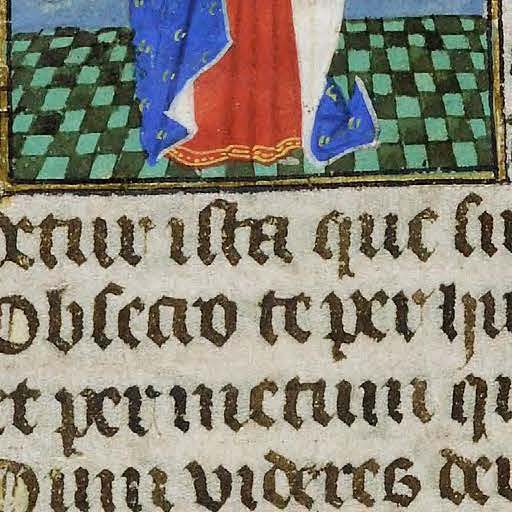 xtur ista que su
Obsecro te per hu
et per metum qu
Dum videres deu